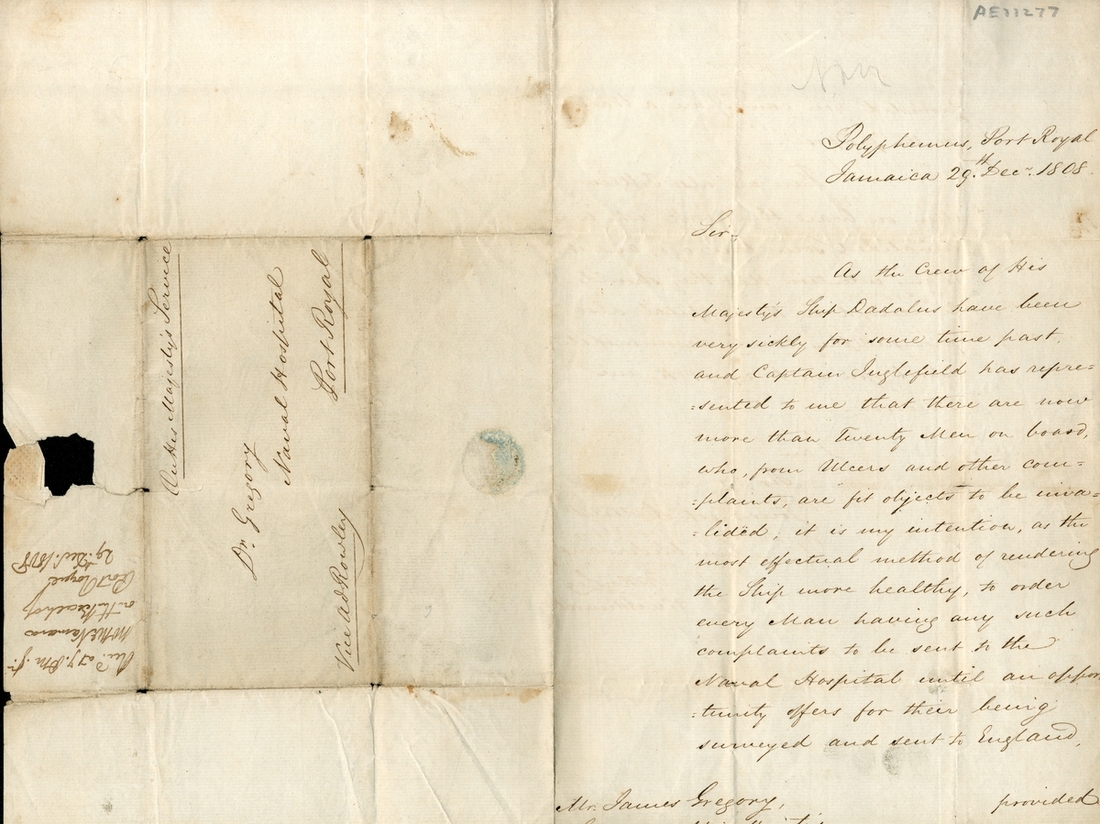 AE11277
Polyphemus, Port Royal
Jamaica 29th Decr. 1808.
Sir,
As the Crew of His
Majesty's Ship Dadalus have been
very sickly for some time past,
and Captain Inglefield has repre=
=sented to me that there are now
more than Twenty Men on board,
who, from Ulcers and other com=
=plaints, are fit objects to be inva=
=lided, it is my intention, as the
most effectual method of rendering
the Ship more healthy, to order
every Man having any such
complaints to be sent to the
Naval Hospital until an oppor
=tunity offers for their being
surveyed and sent to England,
provided
Mr. James Gregory,
On His Majesty's Service
Dr. Gregory
Naval Hospital
Port Royal
Vice Ad Rowley
29. Dec. 1808